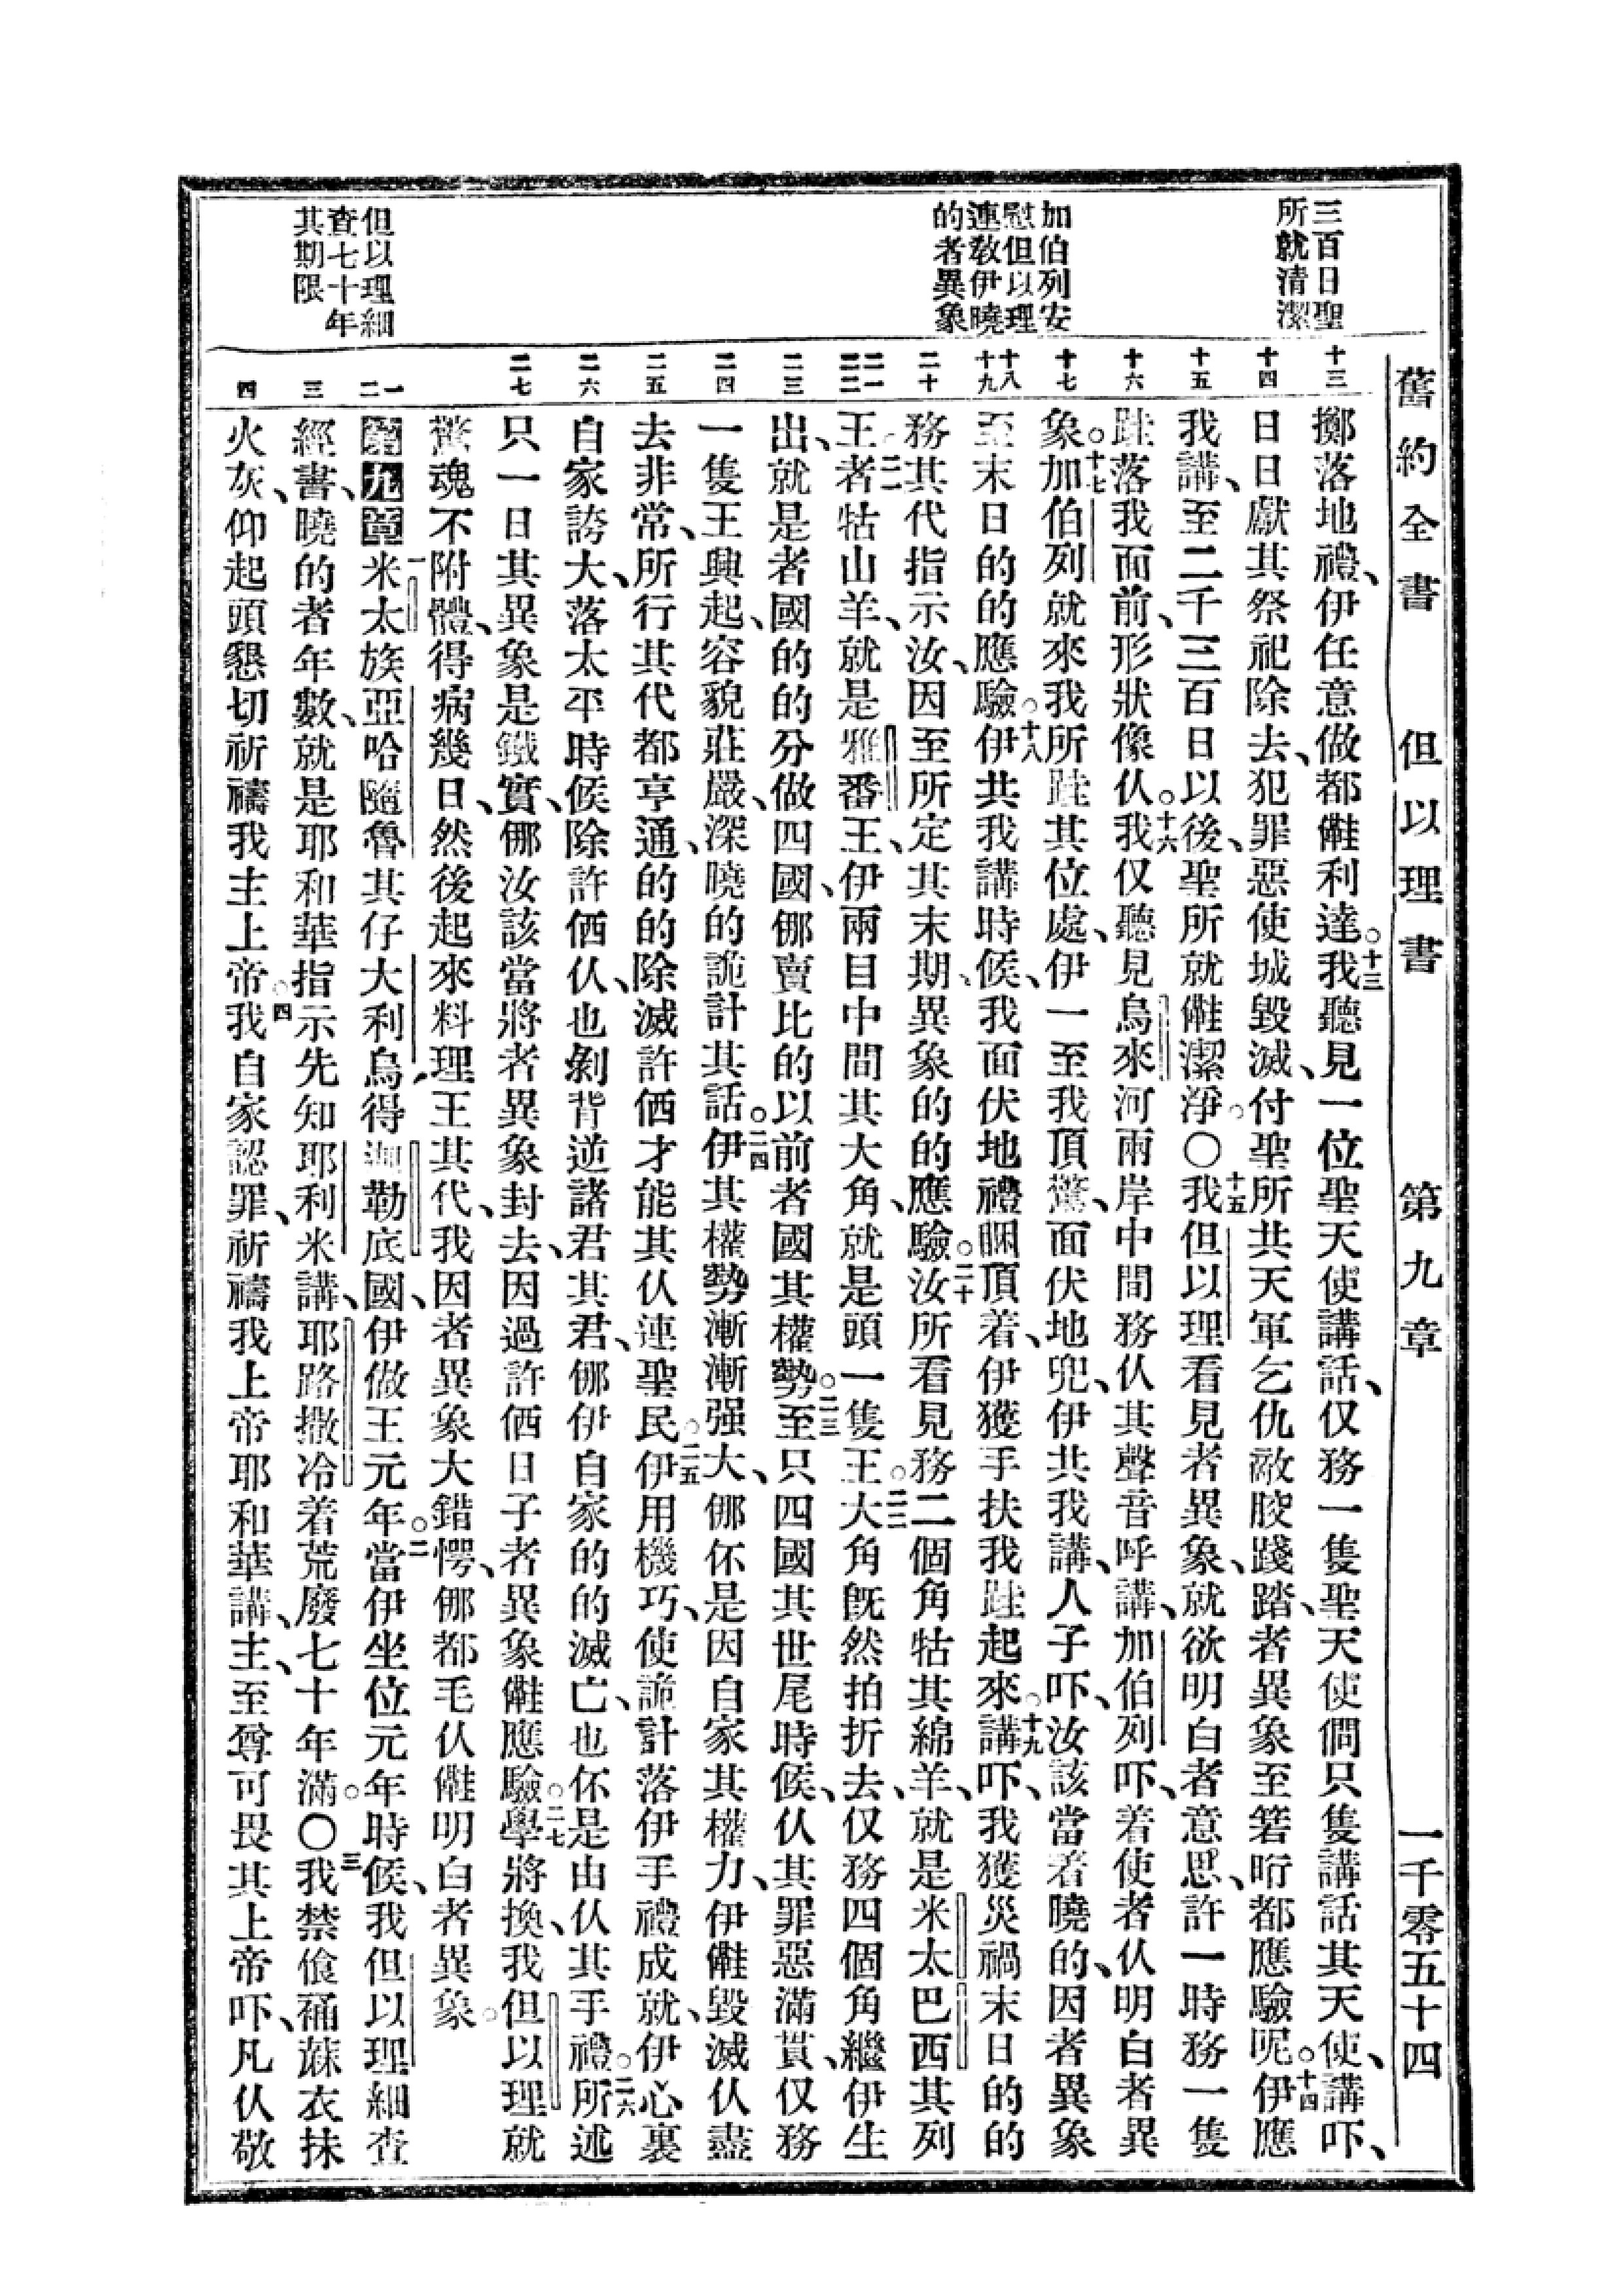 舊約全書 但以理書 第九章 一千零五十四
三百日聖
所就清潔
加伯列安
慰但以理
連教伊曉
的者異象
但以理細
查七十年
其期限
十三
十四
十五
十六
十七
十八
十九
二十
二一
二二
二三
二四
二五
二六
二七
一
二
三
四
擲落地禮、伊任意做都㒰利達。十三我聽見一位聖天使講話、仅務一隻聖天使僩只隻講話其天使、講吓、
日日獻其祭祀除去、犯罪惡使城毀滅、付聖所共天軍乞仇敵骹踐踏、者異象至箬晍都應驗呢。十四伊應
我講、至二千三百日以後、聖所就㒰潔淨。〇十五我但以理看見者異象、就欲明白者意思、許一時務一隻
跬落我面前、形狀像仈。十六我仅聽見烏來河兩岸中間務仈其聲音呼講、加伯列吓、着使者仈明白者異
象。十七加伯列就來我所跬其位處、伊一至我頂驚、面伏地兜、伊共我講、人子吓、汝該當着曉的、因者異象
至末日的的應驗。十八伊共我講時候、我面伏地禮睏、頂着、伊獲手扶我跬起來。十九講吓、我獲災禍末日的的
務其代指示汝、因至所定其末期、異象的的應驗。二十汝所看見務二個角牯其綿羊、就是米太巴西其列
王。二一者牯山羊、就是雅番王、伊兩目中間其大角、就是頭一隻王。二二大角旣然拍折去、仅務四個角繼伊生
出、就是者國的的分做四國、㑚賣比的以前者國其權勢。二三至只四國其世尾時候、仈其罪惡滿貫、仅務
一隻王興起、容貌莊嚴、深曉的詭計其話。二四伊其權勢漸漸强大、㑚伓是因自家其權力、伊㒰毀滅仈盡
去非常、所行其代都亨通、的的除滅許㑚才能其仈連聖民。二五伊用機巧、使詭計落伊手禮成就、伊心裏
自家誇大、落太平時候除許㑚仈、也剝背逆諸君其君、㑚伊自家的的滅亡、也伓是由仈其手禮。二六所述
只一日其異象是鐵實、㑚汝該當將者異象封去、因過許㑚日子者異象㒰應驗。二七學將換、我但以理就
驚魂不附體、得病幾日、然後起來料理王其代、我因者異象大錯愕、㑚都毛仈㒰明白者異象。
第九章 一米太族亞哈隨魯其仔大利烏、得迦勒底國、伊做王元年。二當伊坐位元年時候、我但以理細查
經書、曉的者年數、就是耶和華指示先知耶利米講、耶路撒冷着荒廢七十年滿。〇三我禁飡補蔴衣抹
火灰、仰起頭懇切祈禱我主上帝。四我自家認罪、祈禱我上帝耶和華講、主、至尊可畏其上帝吓、凡仈敬